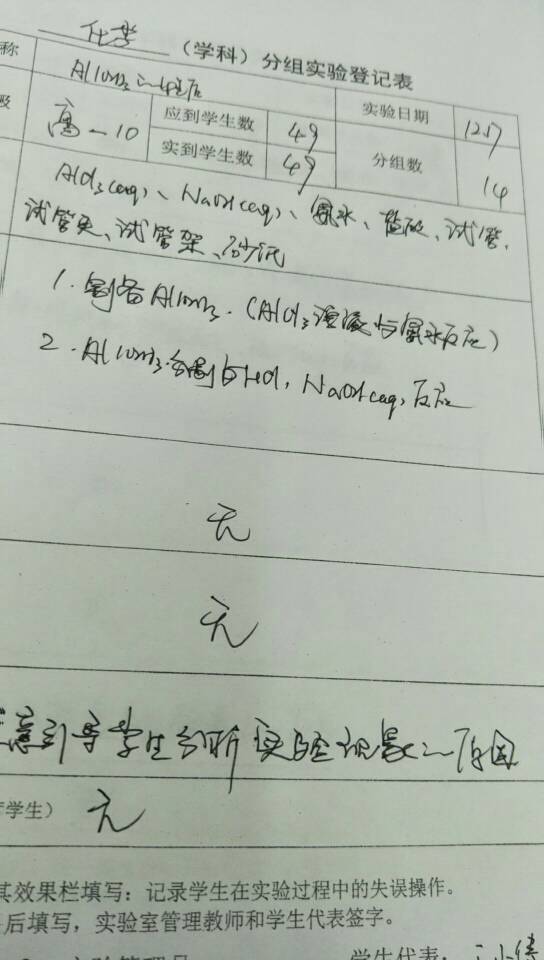 化学（学科）分组实验登记表
称 Al(OH)3的性质 实验日期 12.17
高一10 应到学生数 49
实到学生数 49 分组数 14
AlCl3(aq)、NaOH(aq)、氨水、盐酸、试管、
试管夹、试管架、
1. 制备Al(OH)3.（AlCl3溶液与氨水反应）
2. Al(OH)3分别与HCl, NaOH(aq)反应
无
无
意引导学生分析实验现象的原因
学生） 无
其效果栏填写：记录学生在实验过程中的失误操作。
后填写，实验室管理教师和学生代表签字。
学生代表：